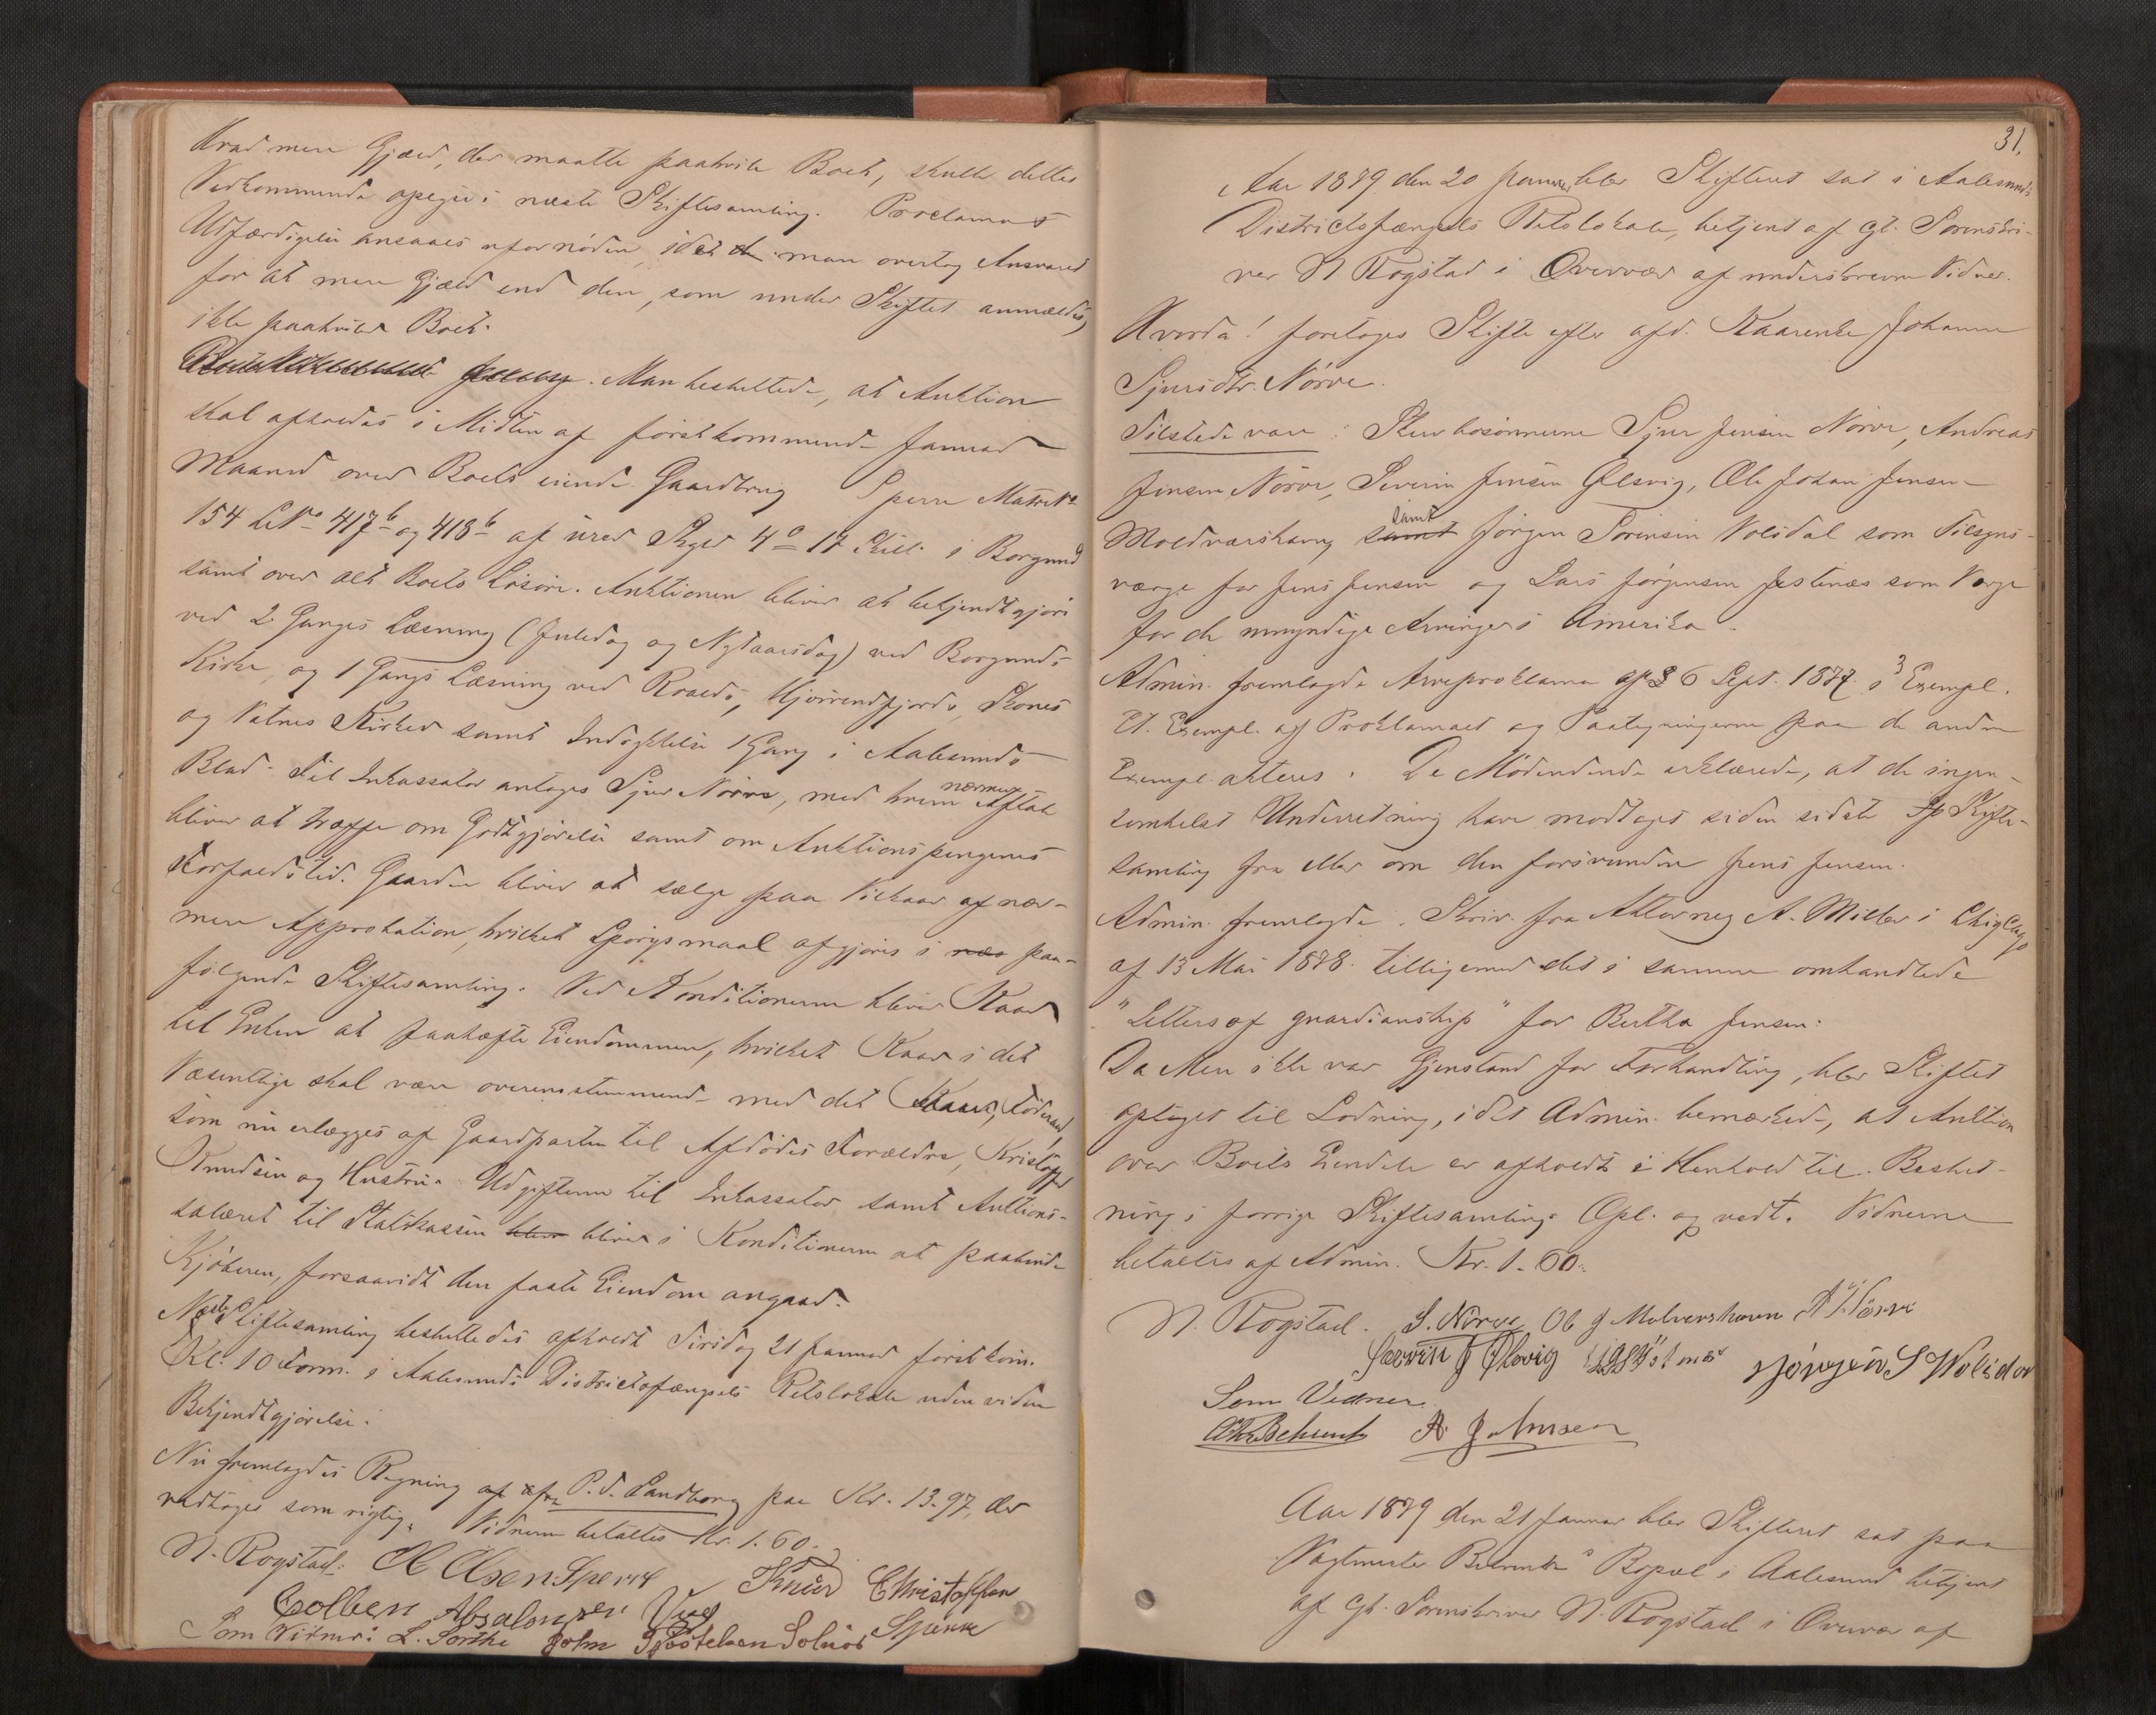 Hvad mere Gjæld, der maatte paahvile Boet, skulle dettes
Vedkommende opgive i næste Skiftesamling. Proclamas
Udfærdigelse ansaaes ufornöden, idet man overtog Ansvaret
for at mere Gjæld end den, som under Skiftet anmeldtes,
ikke paahviler Boet.
Man besluttede, at Auktion
skal afholdes i Midten af förstkommende Januar
Maaned over Boets eiende Gaardbrug Sperre Matr No
154 L No 417 b og 418 b af urev Skyld 4 17 Skill. i Borgund
samt over alt Boets Lösöre. Auktionen bliver at bekjendtgjöre
ved 2 Ganges Læsning (Juledag og Nytaarsdag) ved Borgunds
Kirke, og 1 Gangs Læsning ved Roalds, Hjörendfjords,
og Vatnes Kirker samt Indrykkelse 1 Gang i Aalesunds
Blad. Til Inkassator antages Sjur Nörve, med hvem nærmere Aftale
bliver at træffe om Godtgjörelse samt om Auktionspengenes
Forfaldstid. Gaarden bliver at sælge paa Vilkaar af nær-
mere Approbation, hvilket Spörgsmaal afgjöres i næs paa-
fölgende Skiftesamling. Ved Konditionerne bliver Kaar
til Enken at paahæfte Eiendommen, hvilket Kaar i det
Væsentlige skal være overensstemmende med det Kaar, Föderaad,
som nu erlægges af Gaardparten til Afdödes Forældre, Kristoffer
Knudsen og Hustru. Udgifterne til Inkassator samt Auktions-
salæret til Statskassen bliver i Konditionerne at paabinde
Kjöberen, forsaavidt den faste Eiendom angaar.
Næste Skiftesamling besluttedes afholdt Tirsdag 21 Januar förstkom.
Kl. 10 Form. i Aalesunds Districtsfængsels Retslokale uden viden
Bekjendtgjörelse.
Nu fremlagdes Regning af fra P. T. Sandborg paa Kr. 13.97, der
vedtoges som rigtig. Vidnerne betaltes Kr. 1.60.
N. Rogstad. O Olsen Sperre Knud Christoffersen
Colben Absalonsen Sperre
Som Vidner: L. Sörthe John Solnör
31.
Aar 1879 den 20 Januar blev Skifteret sat i Aalesunds
Districtsfængsels Retslokale, betjent af gt. Sorenskri-
ver N Rogstad i Overvær af underskrevne Vidner.
Hvorda! foretages Skifte efter afd. Kaarenke Johanne
Sjursdtr. Nörve.
Tilstede vare: Stervbosönnerne Sjur Jensen Nörve, Andreas
Jensen Nörve, Severin Jensen Ölsvig, Ole Johan Jensen
Moldværshaug samt samt Jörgen Sörensen Volsdal som Tilsyns-
værge for Jens Jensen og Lars Jörgensen Jestenæs som Verge
for de umyndige Arvinger i Amerika.
Admin. fremlagde Arveproklama af 6 Sept. 1877 i 3 Exempl.
Et Exempl. af Proklamaet og Paategningerne paa de andre
Exempl. akteres. De Mödendende erklærede, at de ingen-
somhelst Underretning have modtaget siden sidste Skifte-
samling fra eller om den forsvundne Jens Jensen.
Admin. fremlagde Skriv. fra Attorney A. Miller i Chigcago
af 13 Mai 1878 tilligemed det i samme omhandlede
"Letters of guardianship" for Bertha Jensen.
Da Mere ikke var Gjenstand for Forhandling, blev Skiftet
optaget til Lodning, idet Admin. bemærkede, at Auktion
over Boets Eiendele er afholdt i Henhold til Beslut-
ning i forrige Skiftesamling. Opl. og vedt. Vidnerne
betaltes af Admin. Kr. 1.60.
N. Rogstad. S. Nörve Ole J Molvershaven A J Nörve
Severin J Ölsvig Jörgen S Wolsdal
Som Vidner:
Behrentz A. Johnsen
Aar 1879 den 21 Januar blev Skifteret sat paa
Vagtmester Behrentz's Bopæl i Aalesund betjent
af Gt. Sorenskriver N. Rogstad i Overvær af